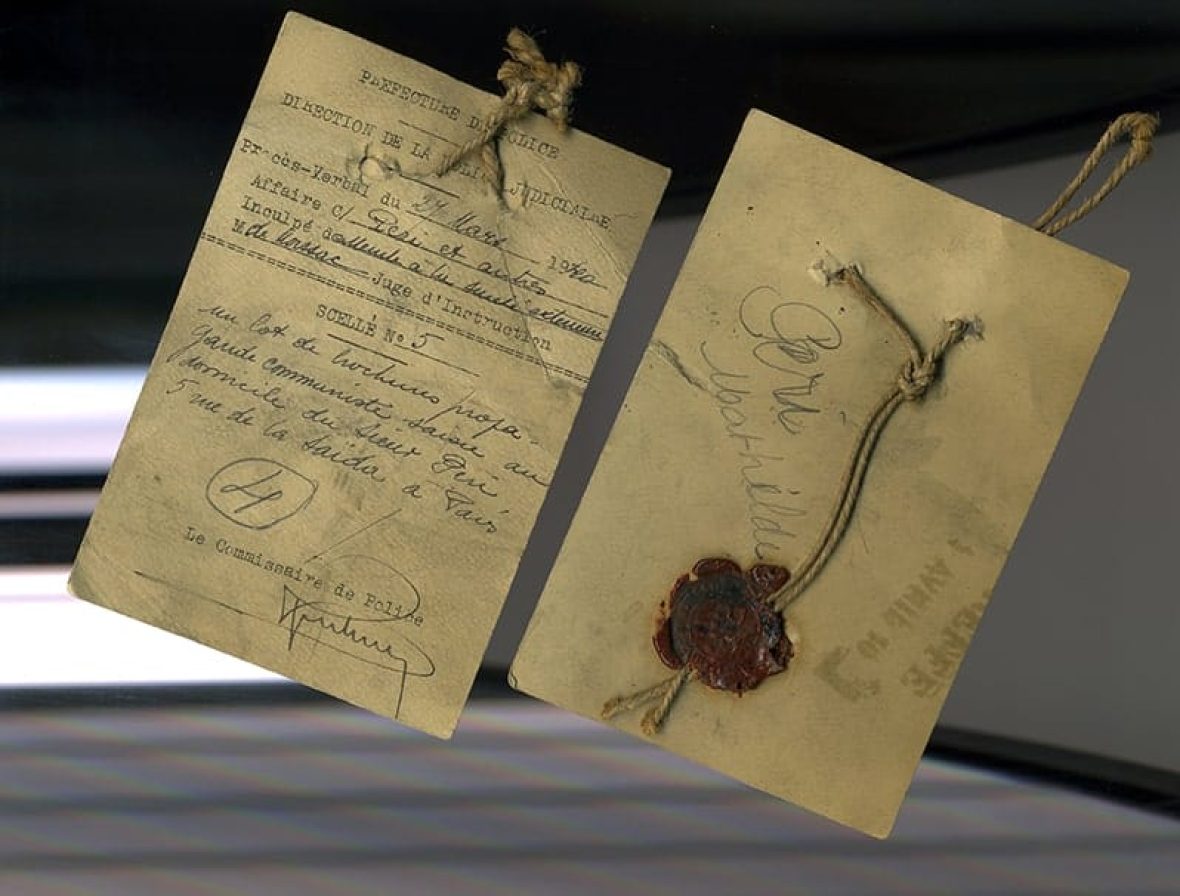 PREFECTURE DE POLICE
DIRECTION DE LA POLICE JUDICIAIRE
Procès-Verbal du 27 Mars 1940
Affaire c/ Péri et autres
Inculpé d
M de Juge d'Instruction
SCELLÉ N° 5
un lot de brochures propa-
gande communiste saisie au
domicile du sieur Péri
5 rue de la Saïda à Paris
4
Le Commissaire de Police
Péri
Mathilde
AVRIL